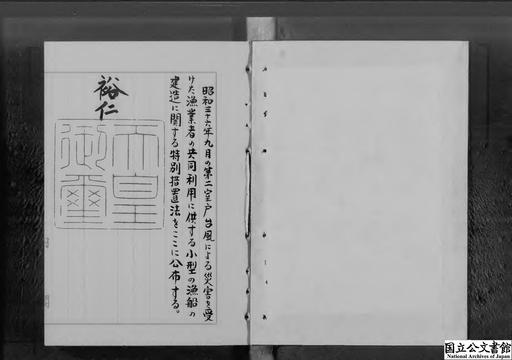 昭和三十六年九月の第二室戸台風による災害を受
けた漁業者の共同利用に供する小型の漁船の
建造に関する特別措置法をここに公布する。
裕仁
天皇
御璽
国立公文書館
National Archives of Japan